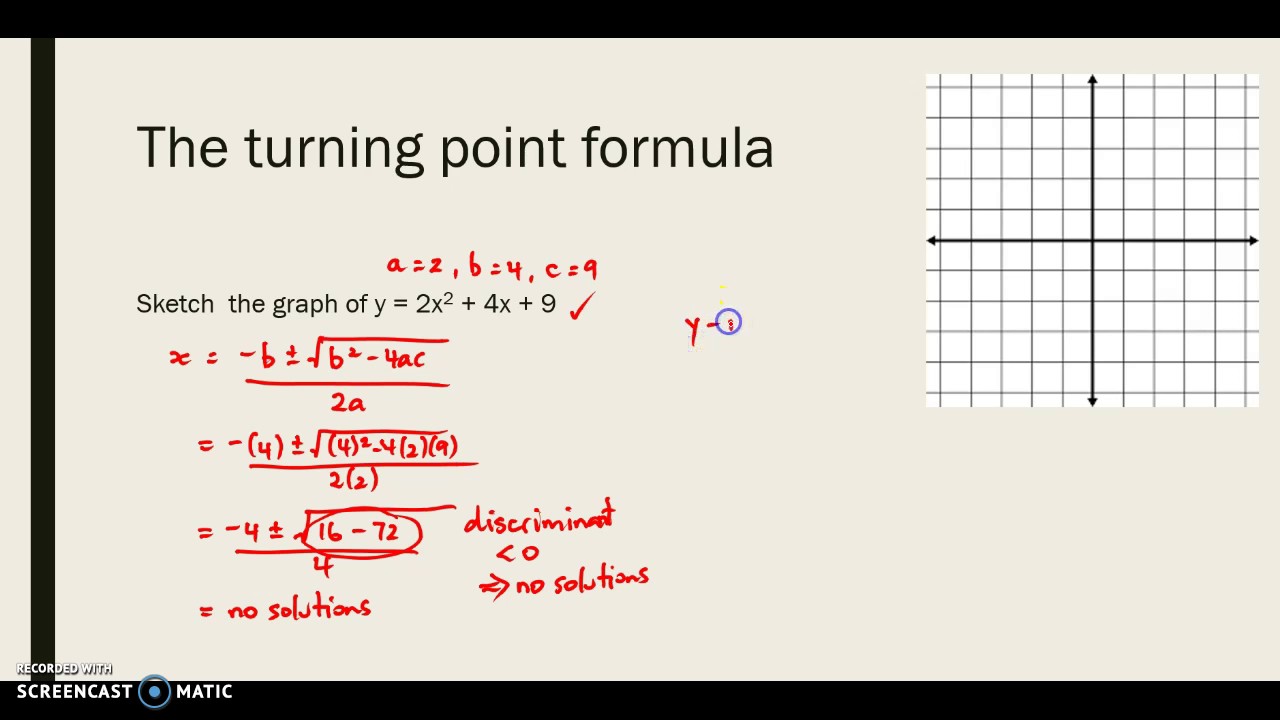 The turning point formula
a = 2, b = 4, c = 9
Sketch the graph of y = 2x² + 4x + 9 ✓
x = -b ± √b² - 4ac
2a
= -(4) ± √(4)² - 4(2)(9)
2(2)
= -4 ± √16 - 72
4
= no solutions
discriminant
< 0
=> no solutions
y - i
RECORDED WITH
SCREENCAST MATIC